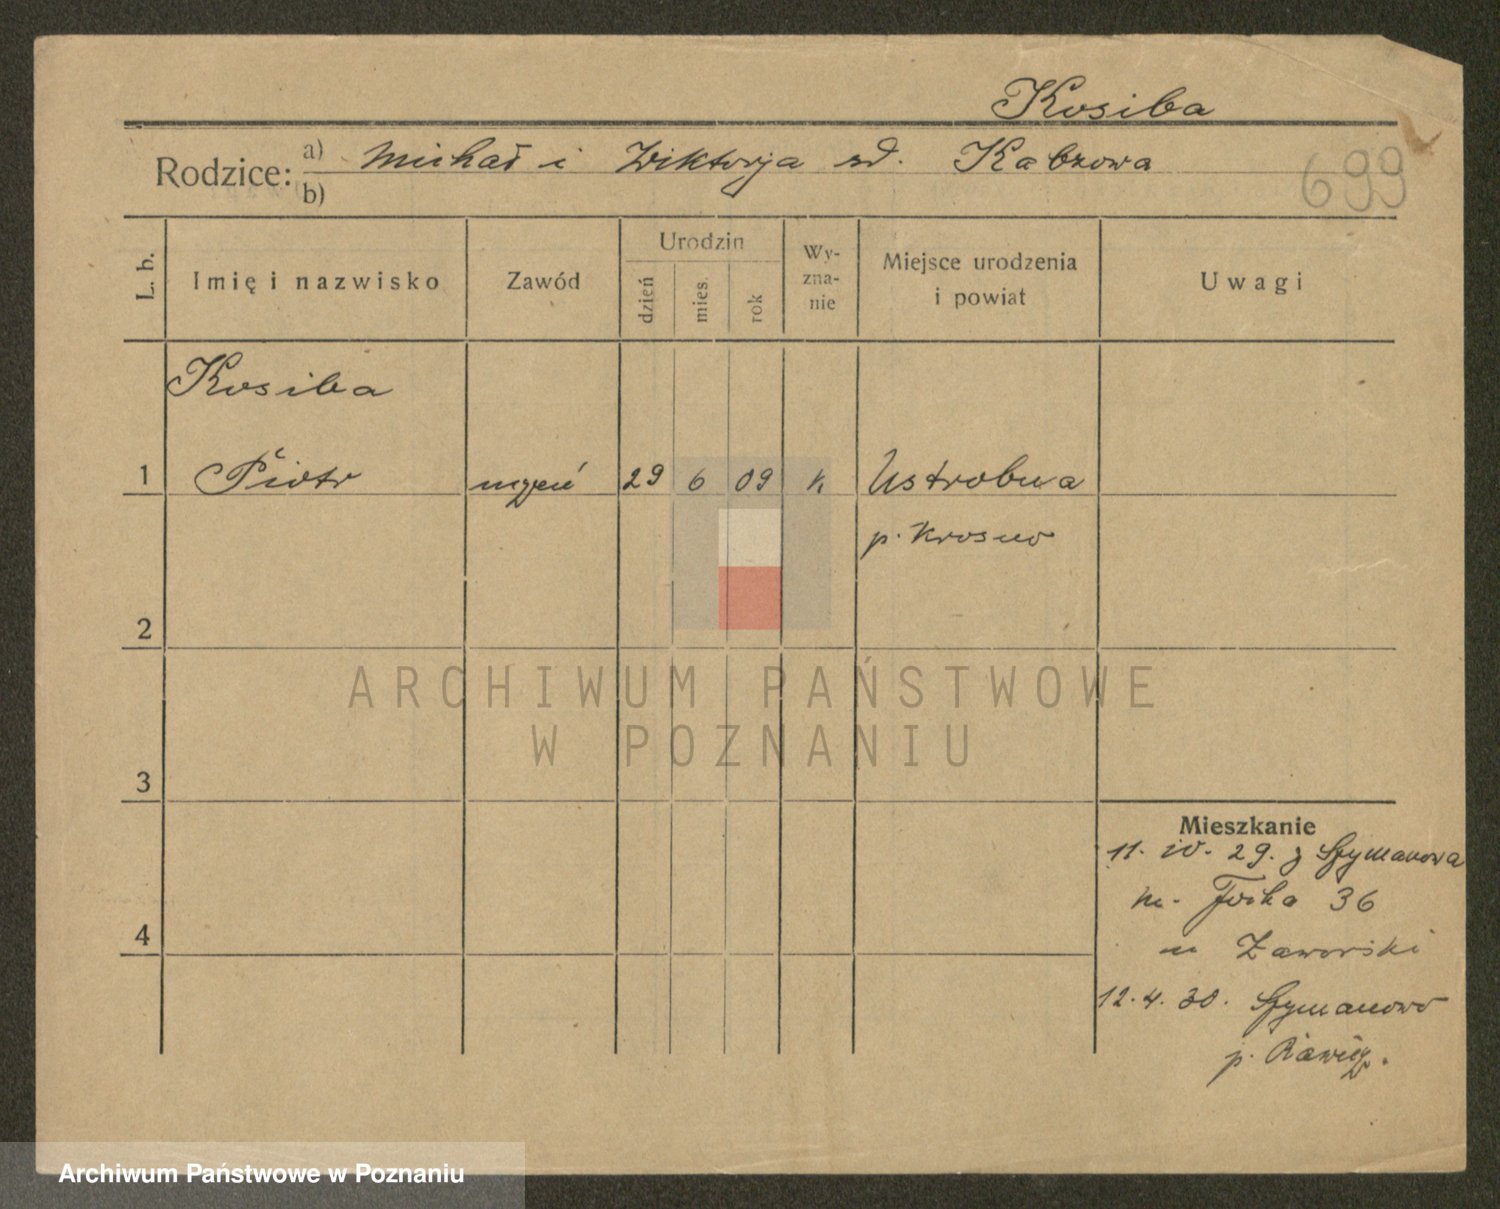 Kosiba
Rodzice: a) Michał i Wiktorja zd. Kabzowa
b)
699
L. b.
Imię i nazwisko
Zawód
Urodzin
dzień
mies.
rok
Wy-
zna-
nie
Miejsce urodzenia
i powiat
Uwagi
Kosiba
1 Piotr uczeń 29 6 09 k Ustrobna
p. Krosno
2
ARCHIWUM PAŃSTWOWE
W POZNANIU
3
Mieszkanie
11. IV. 29. z Szymanowa
m. 36
4
u Zaworski
12.4.30. Szymanowo
p. Rawicz.
Archiwum Państwowe w Poznaniu